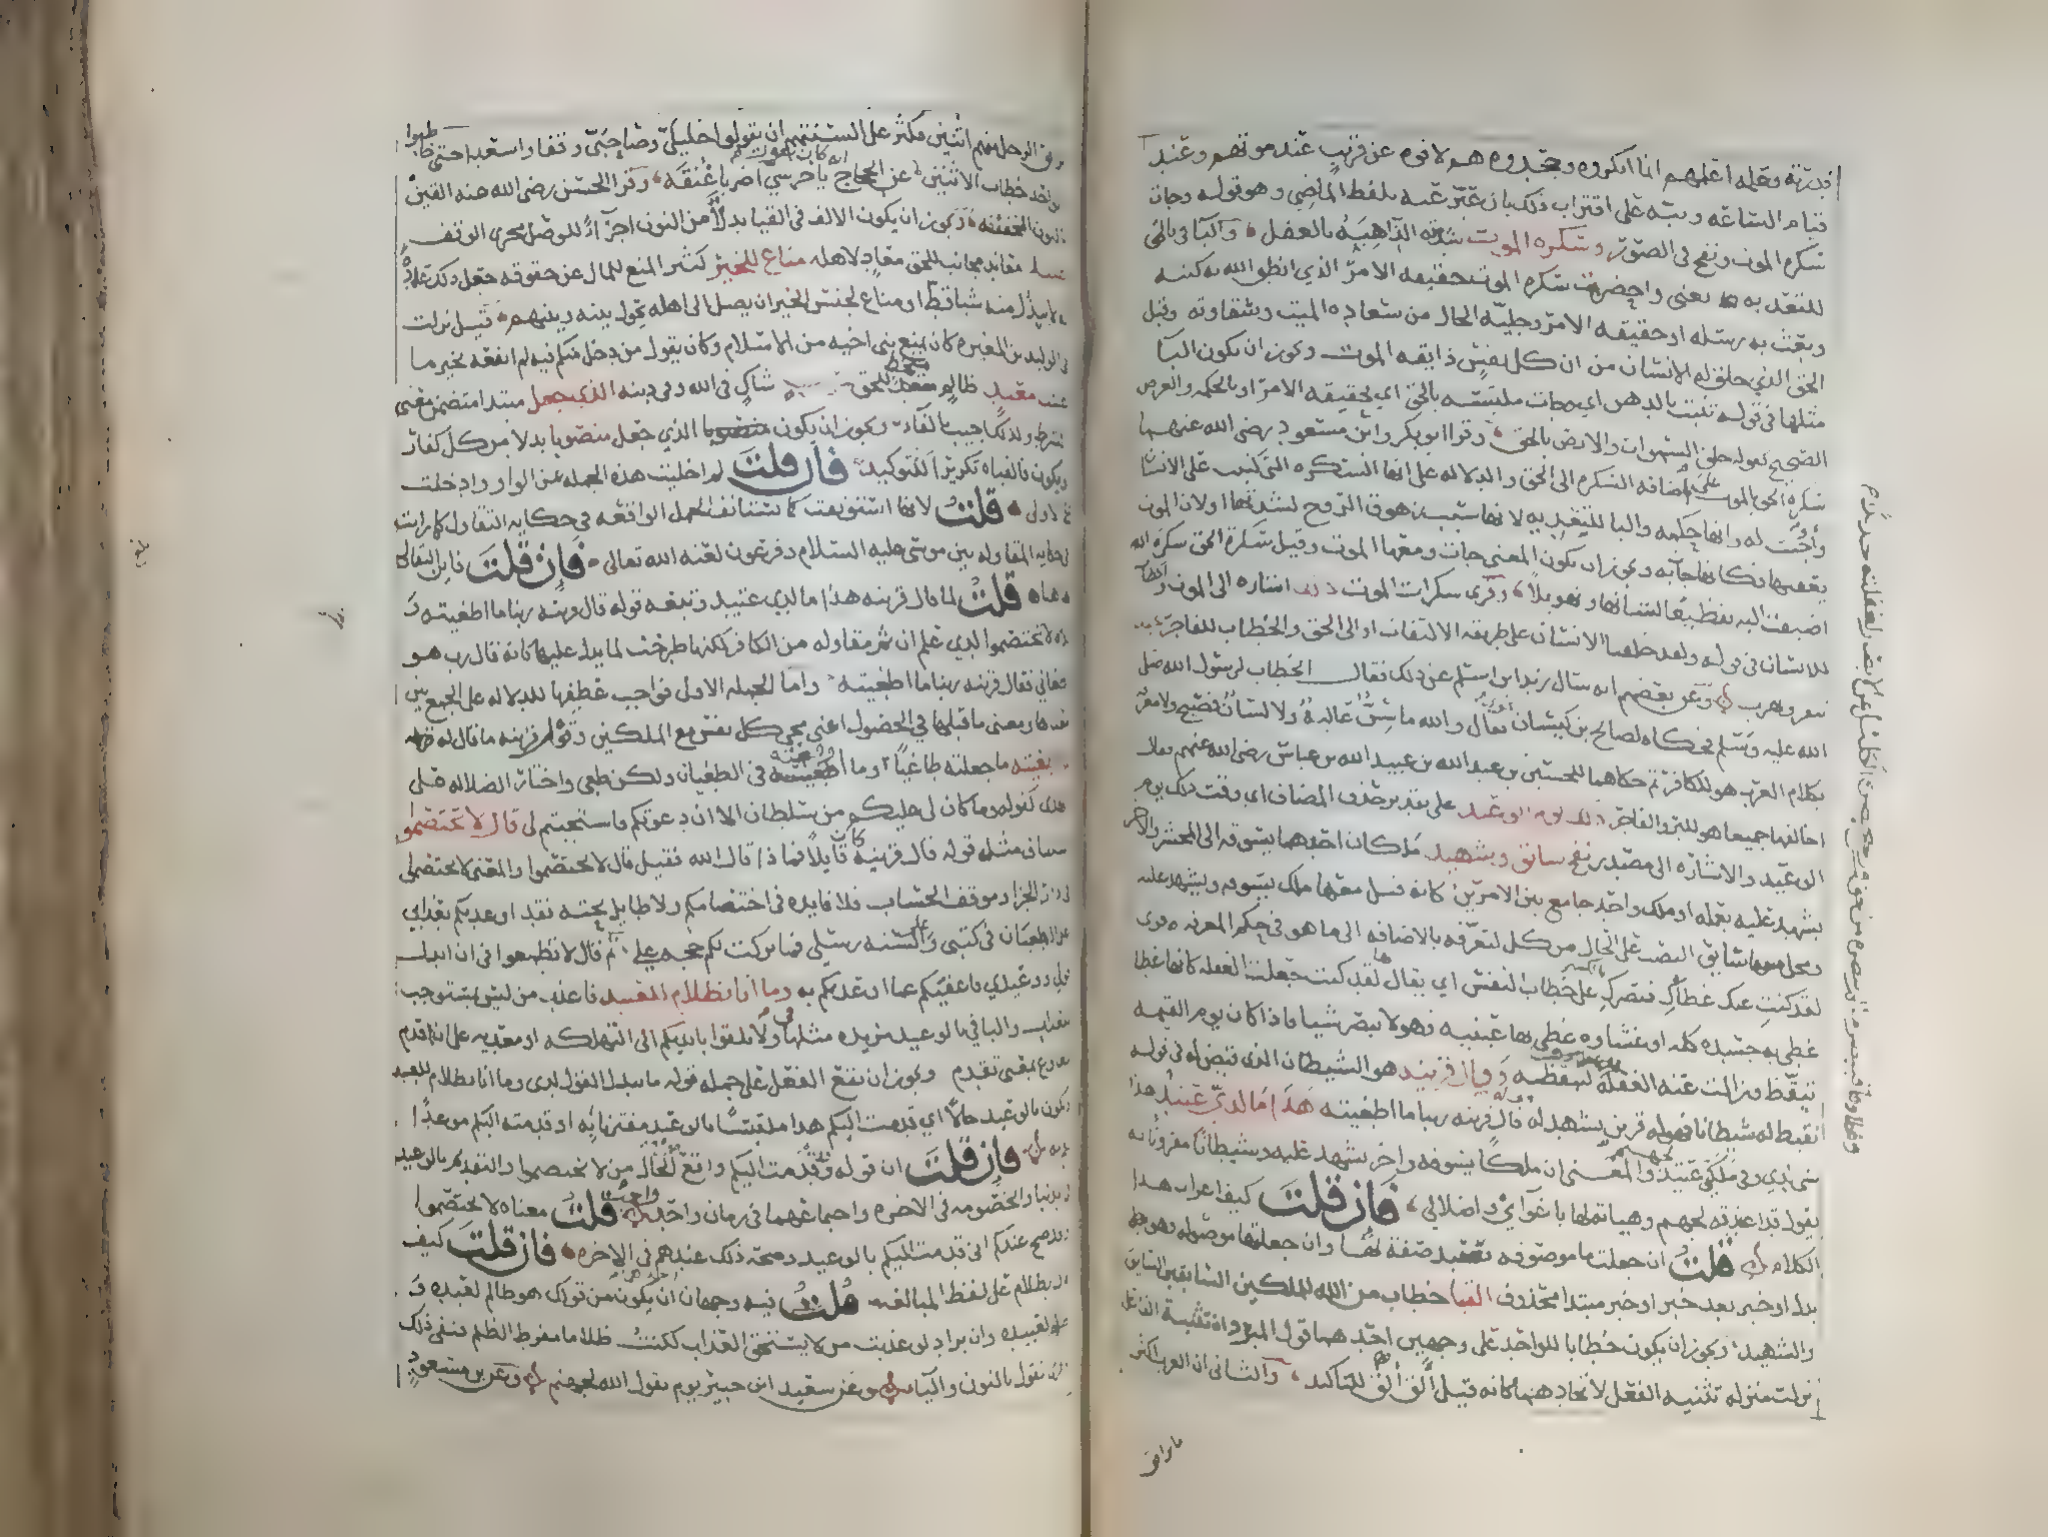 قدرته وعلمه اعلمهم ان ما انكروه وجحدوه هم لاقوه عن قريب عند موتهم وعند
قيام الساعه ونبه على اقتراب ذلك بان عبر عنه بلفظ الماضي وهو قوله وجات
سكره الموت ونفخ في الصور وسكره الموت شدته الذاهبه بالعقل والبا في بالحق
للتعديه يعني واحضرت سكره الموت حقيقه الامر الذي انطق الله به كتبه
وبعث به رسله او حقيقه الامر وجليه الحال من سعاده الميت وشقاوته وقيل
الحق الذي خلق له الانسان من ان كل نفس ذايقه الموت ويجوز ان يكون البا
مثلها في قوله تنبت بالدهن اي وجات ملتبسه بالحق اي بحقيقه الامر او بالحكمه والغرض
الصحيح كقوله خلق السموات والارض بالحق وقرا ابو بكر وابن مسعود رضي الله عنهما
سكره الحق بالموت على اضافه السكره الى الحق والدلاله على انها السكره التي كتبت على الانسان
واوجبت له وانها حكمه والبا للتعديه لانها سبب زهوق الروح لشدتها او لان الموت
يعقبها فكانها جات به ويجوز ان يكون المعنى جات ومعها الموت وقيل سكرة الحق سكره الله
اضيفت اليه تفظيعا لشانها وتهويلا وقرى سكرات الموت ذلك اشاره الى الموت والخطاب
للانسان في قوله ولقد خلقنا الانسان على طريقه الالتفات او الى الحق والخطاب للفاجر
تنفر وتهرب وعن بعضهم انه سال زيد ابن اسلم عن ذلك فقال الخطاب لرسول الله صلى
الله عليه وسلم فحكاه لصالح بن كيسان فقال والله ما سن عاليه ولا لسان فصيح ولا معرفه
بكلام العرب هو للكافر ثم حكاهما للحسين بن عبد الله بن عبيد الله بن عباس رضي الله عنهم فقال
اخالفهما جميعا هو للبر والفاجر ذلك يوم الوعيد على تقدير حذف المضاف اي وقت ذلك يوم
الوعيد والاشاره الى مصدر نفخ سائق وشهيد ملكان احدهما يسوقه الى المحشر والاخر
يشهد عليه بعمله او ملك واحد جامع بين الامرين كانه قيل معها ملك يسوقه ويشهد عليه
ومحل معها سائق النصب على الحال من كل لتعرفه بالاضافه الى ما هو في حكم المعرفه قرى
لقد كنت عنك غطاك فبصرك على خطاب النفس اي يقال لها لقد كنت جعلت الغفله كانها غطا
غطي به جسده كله او غشاوه غطي بها عينيه فهو لا يبصر شيا فاذا كان يوم القيمه
تيقظ وزالت عنه الغفله وقال قرينه هو الشيطان الذي قيض له في قوله
نقيض له شيطانا فهو له قرين يشهد له قوله قال قرينه ربنا ما اطغيته هذا ما لدي عتيد هذا
شي لدي وفي ملكي عتيد لجهنم والمعنى ان ملكا يسوقه واخر يشهد عليه وشيطانا مقرونا به
يقول قد اعتدته لجهنم وهياته لها باغوائي واضلالي فان قلت كيف اعراب هذا
الكلام قلت ان جعلت ما موصوفه فعتيد صفة لها وان جعلتها موصوله فهو
بدل او خبر بعد خبر او خبر مبتدا محذوف القيا خطاب من الله للملكين السابقين السايق
والشهيد ويجوز ان يكون خطابا للواحد على وجهين احدهما قول المبرد ان تثنية الفاعل
نزلت منزله تثنيه الفعل لاتحادهما كانه قيل الق الق للتاكيد والثاني ان العرب اكثر
ما يرافق
يرافق الرجل منهم اثنين فكثر على السنتهم ان يقولوا خليلي وصاحبي وقفا واسعدا حتى خاطبوا
الواحد خطاب الاثنين عن الحجاج انه كان يقول يا حرسي اضربا عنقه وقرا الحسن رضي الله عنه القين
بالنون الخفيفه ويجوز ان يكون الالف في القيا بدلا من النون اجرآء للوصل مجرى الوقف
عنيد معاند مجانب للحق معاد لاهله مناع للخير كثير المنع للمال عن حقوقه جعل ذلك عادة
لا يبذل منه شيا قط او مناع لجنس الخير ان يصل الى اهله يحول بينه وبينهم قيل نزلت
في الوليد بن المغيره كان يمنع بني اخيه من الاسلام وكان يقول من دخل منكم فيه لم انفعه بخير ما
عشت معتد ظالم متخط للحق مريب شاك في الله وفي دينه الذي جعل مبتدا متضمن معنى
الشرط ولذلك اجيب بالفاء ويجوز ان يكون الذي جعل منصوبا بدلا من كل كفار
ويكون فالقياه تكريرا للتوكيد فان قلت لم اخليت هذه الجمله عن الواو وادخلت
على الاولى قلت لانها استونفت كما تستانف الجمل الواقعه في حكايه التقاول كما رايت
في حكايه المقاوله بين موسى عليه السلام وفرعون لعنه الله تعالى فان قلت فاين التقاول
هاهنا قلت لما قال قرينه هذا ما لدي عتيد وتبعه قوله قال قرينه ربنا ما اطغيته و
تلاه لا تختصموا لدي علم ان ثم مقاوله من الكافر لكنها طرحت لما يدل عليها كانه قال رب هو
اطغاني فقال قرينه ربنا ما اطغيته واما الجمله الاولى فواجب عطفها للدلاله على الجمع بين
معناها ومعنى ما قبلها في الحصول اعني مجي كل نفس مع الملكين وقول قرينه ما قال له
ما اطغيته ما جعلته طاغيا وما اوقعته في الطغيان ولكن طغى واختار الضلاله على
الهدى كقوله وما كان لي عليكم من سلطان الا ان دعوتكم فاستجبتم لي قال لا تختصموا
استئناف مثله قوله قال قرينه كان قايلا قال فماذا قال الله فقيل قال لا تختصموا والمعنى لا تختصموا
في دار الجزا وموقف الحساب فلا فايده في اختصامكم ولا طايل تحته فقد اوعدتكم بعذابي
على الطغيان في كتبي وعلى السنه رسلي فما تركت لكم حجه علي ثم قال لا تطمعوا في ان ابدل
قولي ووعيدي فاعفيكم عما اوعدتكم به وما انا بظلام للعبيد فاعذب من ليس بمستوجب
للعذاب والبا في بالوعيد مزيده مثلها في ولا تلقوا بايديكم الى التهلكه او معديه على ان قدم
مطاوع بمعنى تقدم ويجوز ان يقع الفعل على جمله قوله ما يبدل القول لدي وما انا بظلام للعبيد
ويكون بالوعيد حالا اي قدمت اليكم هذا ملتبسا بالوعيد مقترنا به او قدمته اليكم موعدا
لكم به فان قلت ان قوله وقد قدمت اليكم واقع موقع الحال من لا تختصموا والتقديم بالوعيد
في الدنيا والخصومه في الاخره واجتماعهما في زمان واحد واجب قلت معناه لا تختصموا
وقد صح عندكم اني قدمت اليكم بالوعيد وصحه ذلك عندهم في الاخره فان قلت كيف
قال بظلام على لفظ المبالغه قلت فيه وجهان احدهما ان يكون من قولك هو ظالم لعبده و
ظلام لعبيده وان يراد لو عذبت من لا يستحق العذاب لكنت ظلاما مفرط الظلم فنفى ذلك
قرى نقول بالنون والياء وعن سعيد ابن جبير يوم يقول الله لجهنم وعن بن مسعود